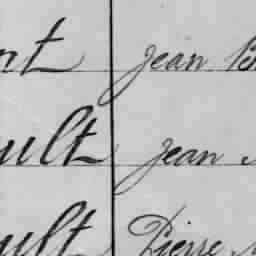 nt Jean
ult Jean
ult Pierre